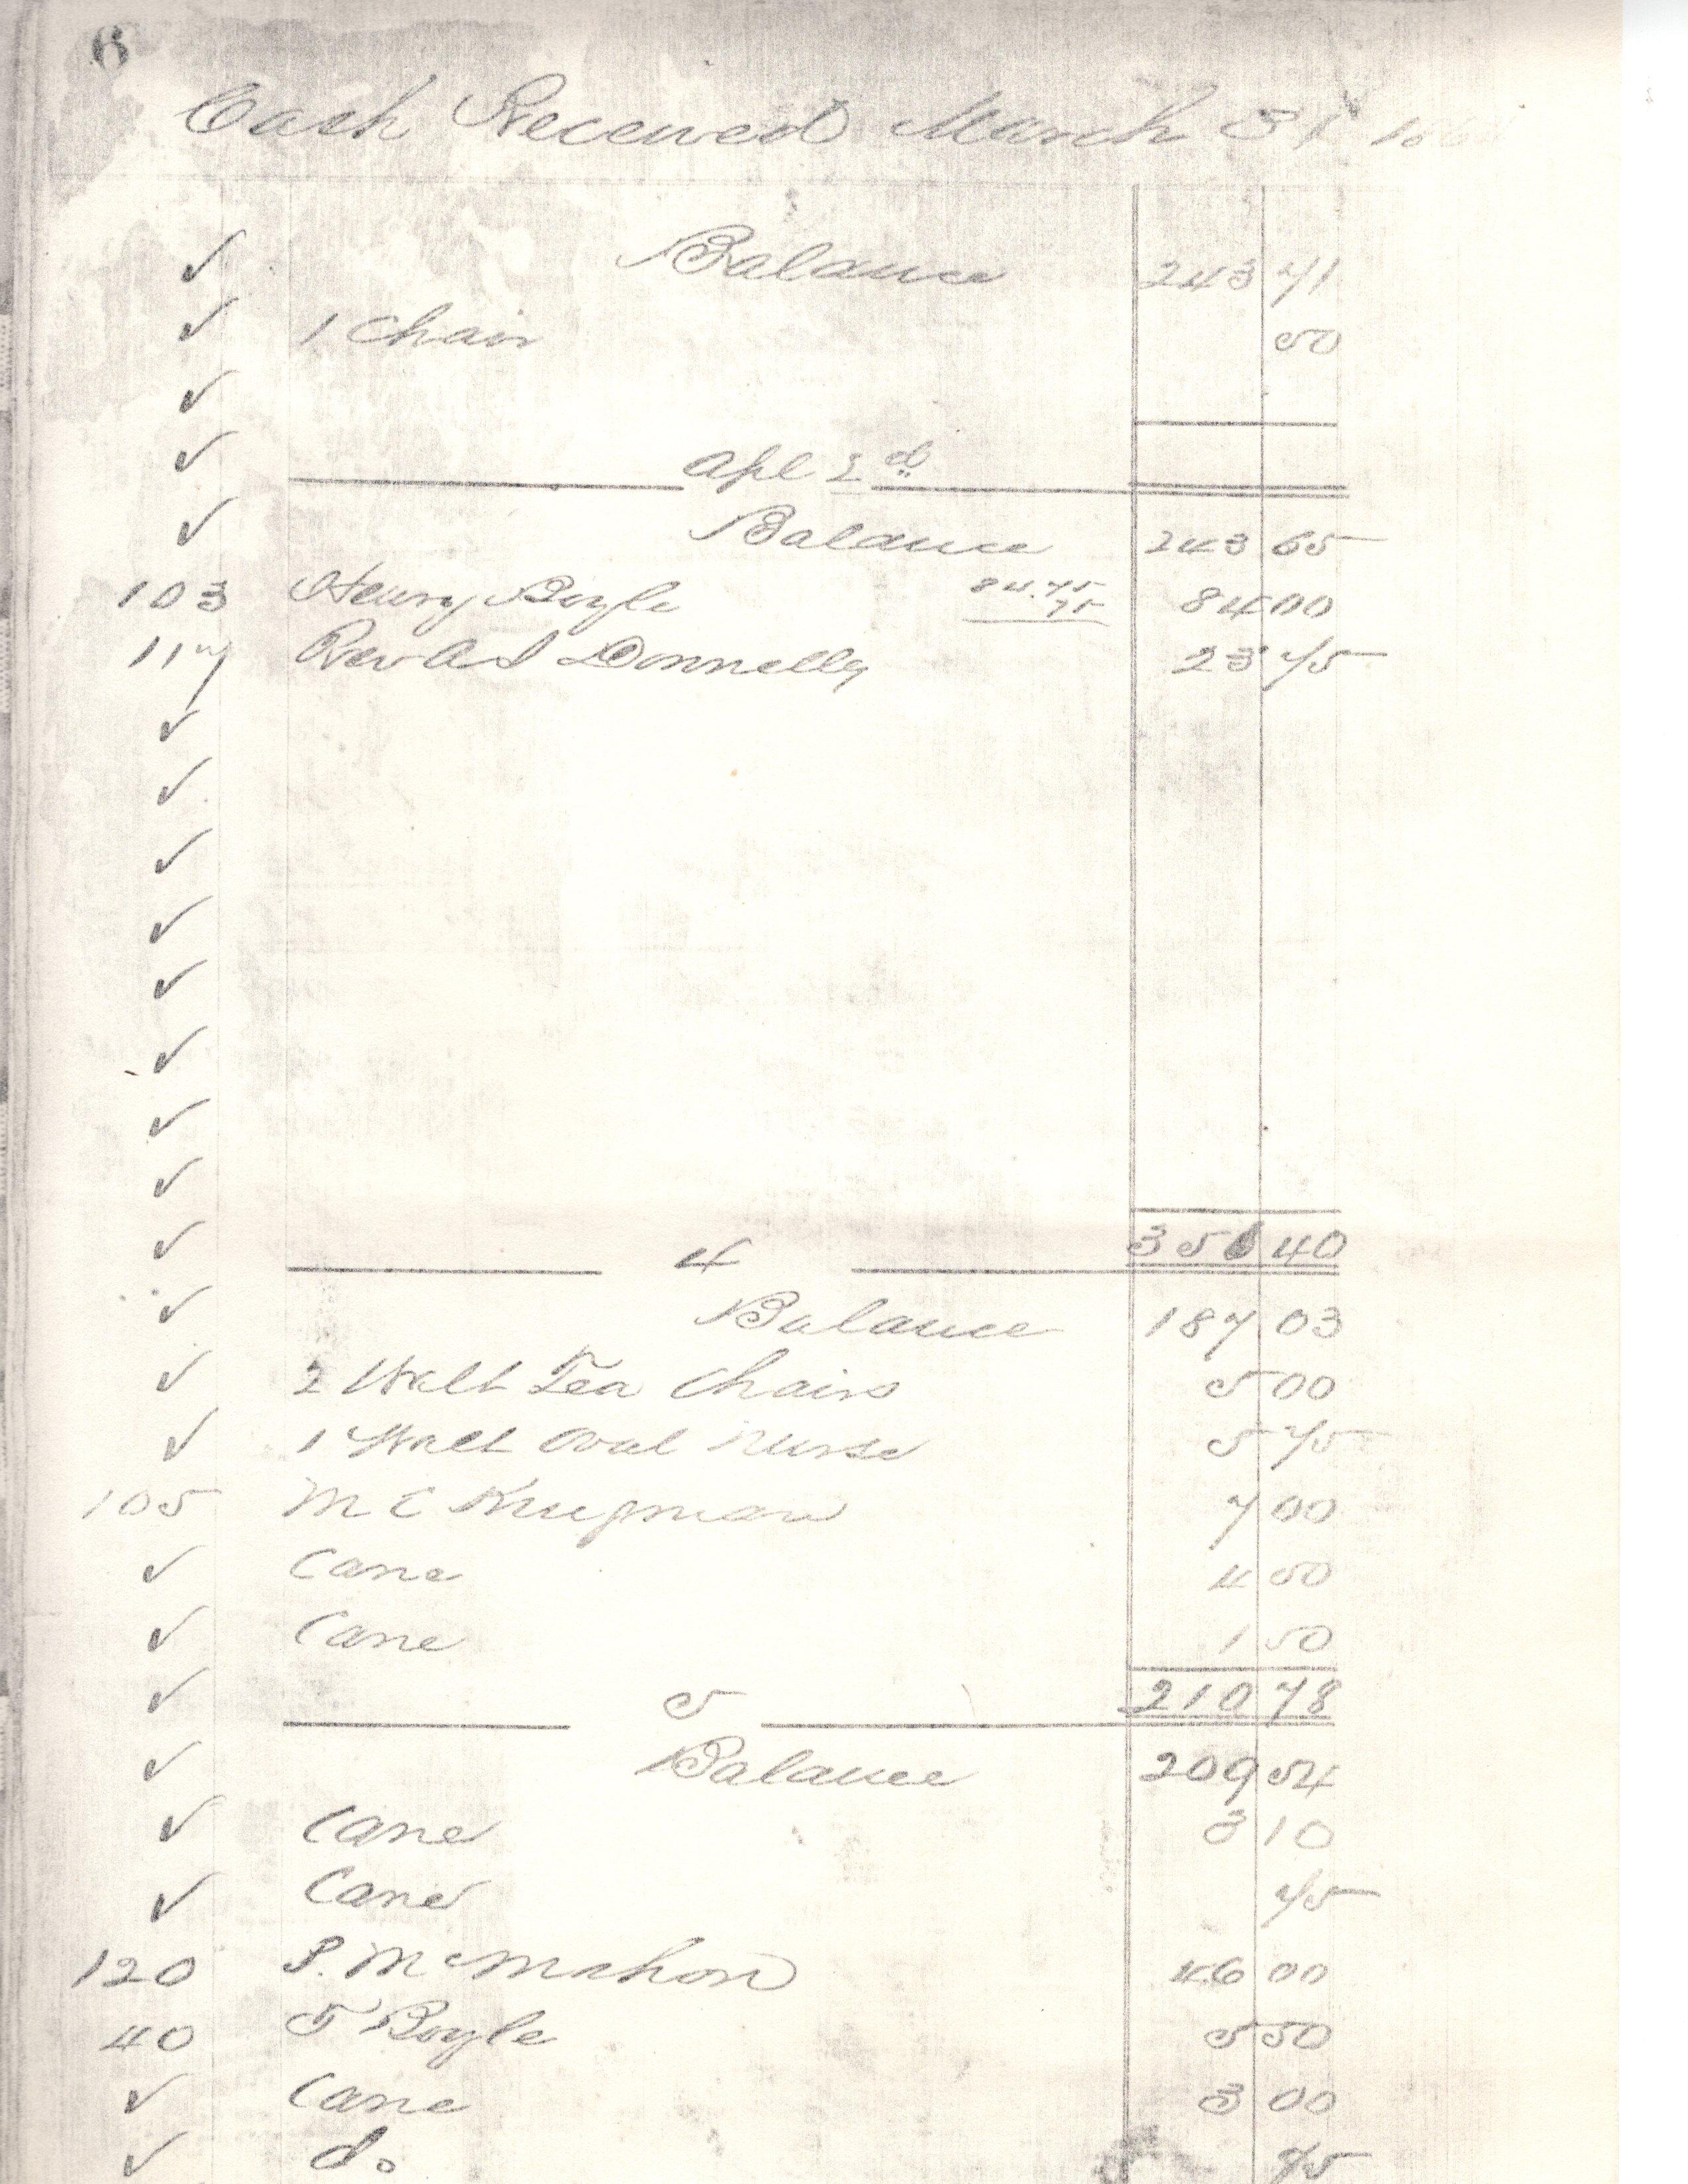 6
Cash Received March 31
✓ Balance 243 71
✓ 1 Chair 50
✓
✓ Apl 2d
✓ Balance 243 65
103 Henry Boyle 84.75 75 84 00
117 Rev A J Donnelly 23 75
✓
✓
✓
✓
✓
✓
✓
✓
✓ 4 351 40
✓ Balance 187 03
✓ 2 Walt Tea Chairs 5 00
✓ 1 Walt Oval Nurse 5 75
105 M C 7 00
✓ Cane 4 50
✓ Cane 1 50
✓ 5 210 78
✓ Balance 209 54
✓ Cane 3 10
✓ Cane 75
120 P. McMahon 46 00
40 Boyle 5 50
✓ Cane 3 00
✓ do 75